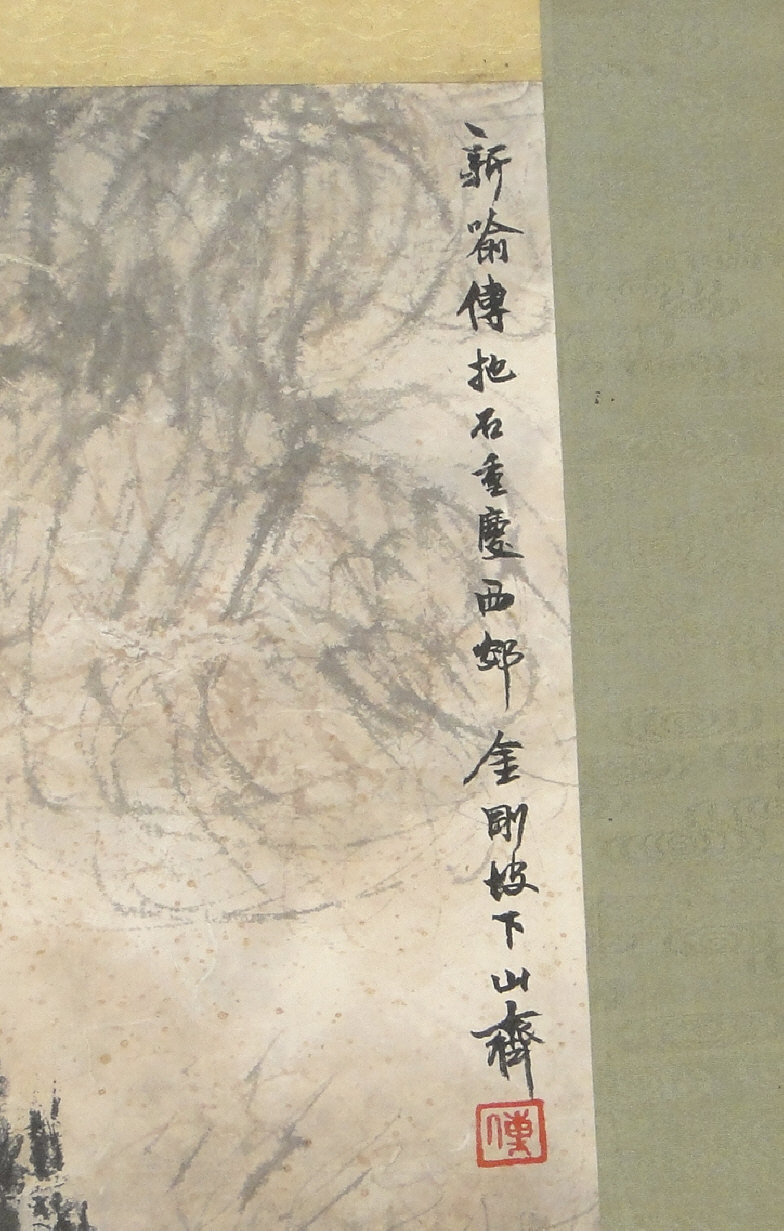 新喻傅抱石重慶西郊金剛坡下山齋
傅